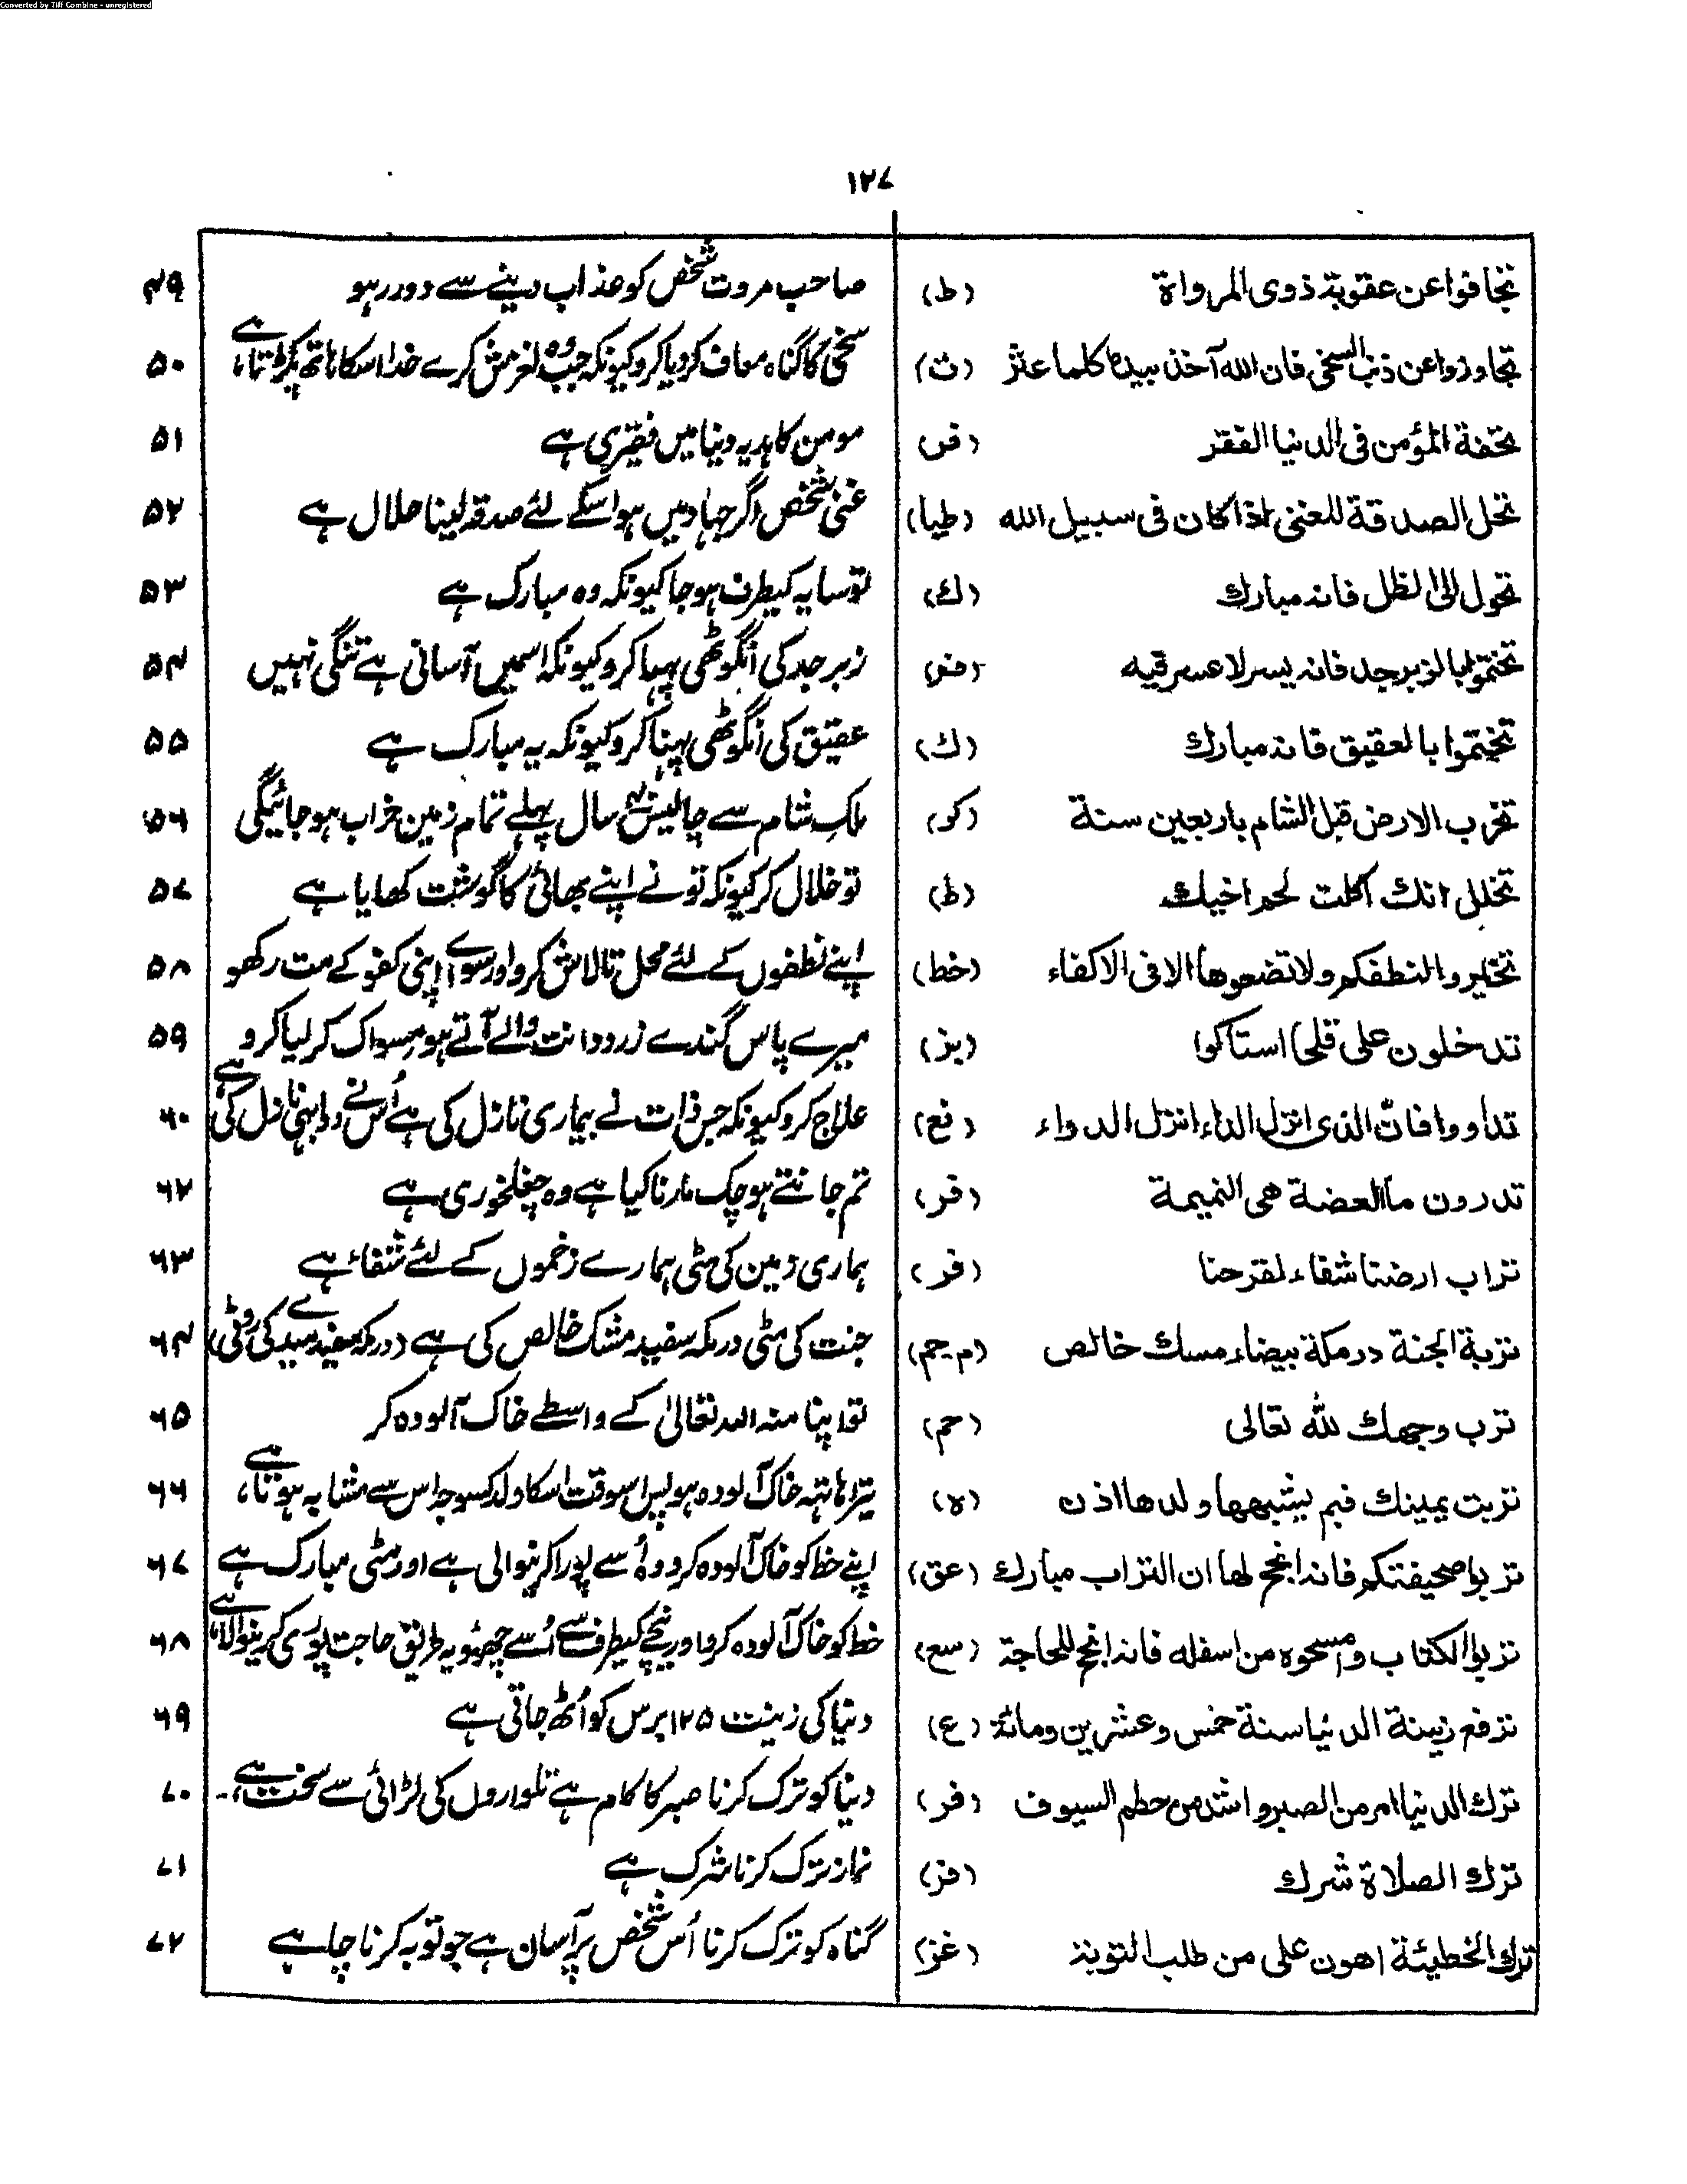 Converted by Tiff Combine - unregistered
١٢٧
تجافوا عن عقوبة ذوى المرواة (ط) صاحب مروت شخص کو عذاب دینے سے دور رہو ۴۹
تجاوزوا عن ذنب السخى فان الله آخذ بيده كلما عثر (ت) سخی کا گناہ معاف کردیا کرو کیونکہ جب وہ لغزش کرے خدا اسکا ہاتھ پکڑتا ہے ۵۰
تحفة المؤمن فى الدنيا الفقر (فر) مومن کا ہدیہ دنیا میں فقیری ہے ۵۱
تحل الصدقة للغنى اذا كان فى سبيل الله (طیا) غنی شخص اگر جہاد میں ہو اسکے لئے صدقہ لینا حلال ہے ۵۲
تحول الى الظل فانه مبارك (ك) تو سایہ کیطرف ہو جا کیونکہ وہ مبارک ہے ۵۳
تختموا بالزبرجد فانه يسر لا عسر فيه (فر) زبرجد کی انگوٹھی پہنا کرو کیونکہ اسمیں آسانی ہے تنگی نہیں ۵۴
تختموا بالعقيق فانه مبارك (ك) عقیق کی انگوٹھی پہنا کرو کیونکہ یہ مبارک ہے ۵۵
تخرب الارض قبل الشام باربعين سنة (کر) ملک شام سے چالیس سال پہلے تمام زمین خراب ہو جائیگی ۵۶
تخلل انك اكلت لحم اخيك (ط) تو خلال کر کیونکہ تو نے اپنے بھائی کا گوشت کھایا ہے ۵۷
تخيروا لنطفكم ولا تضعوها الا فى الاكفاء (خط) اپنے نطفوں کے لئے محل تلاش کرو اور سوائے اپنی کفو کے مت رکھو ۵۸
تدخلون على قلحا استاكوا (بز) میرے پاس گندے زرد دانت والے آتے ہو مسواک کر لیا کرو ۵۹
تداووا فان الذى انزل الداء انزل الدواء (نع) علاج کرو کیونکہ جس ذات نے بیماری نازل کی ہے اُس نے دوا بھی نازل کی ہے ۶۰
تدرون ما العضة هى النميمة (فر) تم جانتے ہو چک مارنا کیا ہے وہ چغلخوری ہے ۶۲
تراب ارضنا شفاء لقرحنا (فر) ہماری زمین کی مٹی ہمارے زخموں کے لئے شفاء ہے ۶۳
تربة الجنة درمكة بيضاء مسك خالص (م.حم) جنت کی مٹی درمکہ سفید مشک خالص کی ہے (درمکہ سفید میدے کی روٹی) ۶۴
ترب وجهك لله تعالى (حم) تو اپنا منہ اللہ تعالیٰ کے واسطے خاک آلودہ کر ۶۵
تربت يمينك فبم يشبهها ولدها اذن (ہ) تیرا ہاتھ خاک آلودہ ہو پس اسوقت اسکا ولد کسوجہ اس سے مشابہ ہوتا ہے ۶۶
تربوا صحيفتكم فانه انجح لها ان التراب مبارك (عق) اپنے خط کو خاک آلودہ کردو وہ اُسے پورا کرنیوالی ہے اور مٹی مبارک ہے ۶۷
تربوا الكتاب وامسحوه من اسفله فانه انجح للحاجة (سع) خط کو خاک آلودہ کرو اور نیچے کیطرف سے اُسے چھیؤ یہ طریق حاجت پوری کرنیوالا ہے ۶۸
ترفع زينة الدنيا سنة خمس وعشرين ومائة (ع) دنیا کی زینت ۱۲۵ برس کو اُٹھ جاتی ہے ۶۹
ترك الدنيا امر من الصبر واشد من حطم السيوف (فر) دنیا کو ترک کرنا صبر کا کام ہے تلواروں کی لڑائی سے سخت ہے۔ ۷۰
ترك الصلاة شرك (فز) نماز ترک کرنا شرک ہے ۷۱
ترك الخطيئة اهون على من طلب التوبة (غز) گناہ کو ترک کرنا اُس شخص پر آسان ہے جو توبہ کرنا چاہے ۷۲